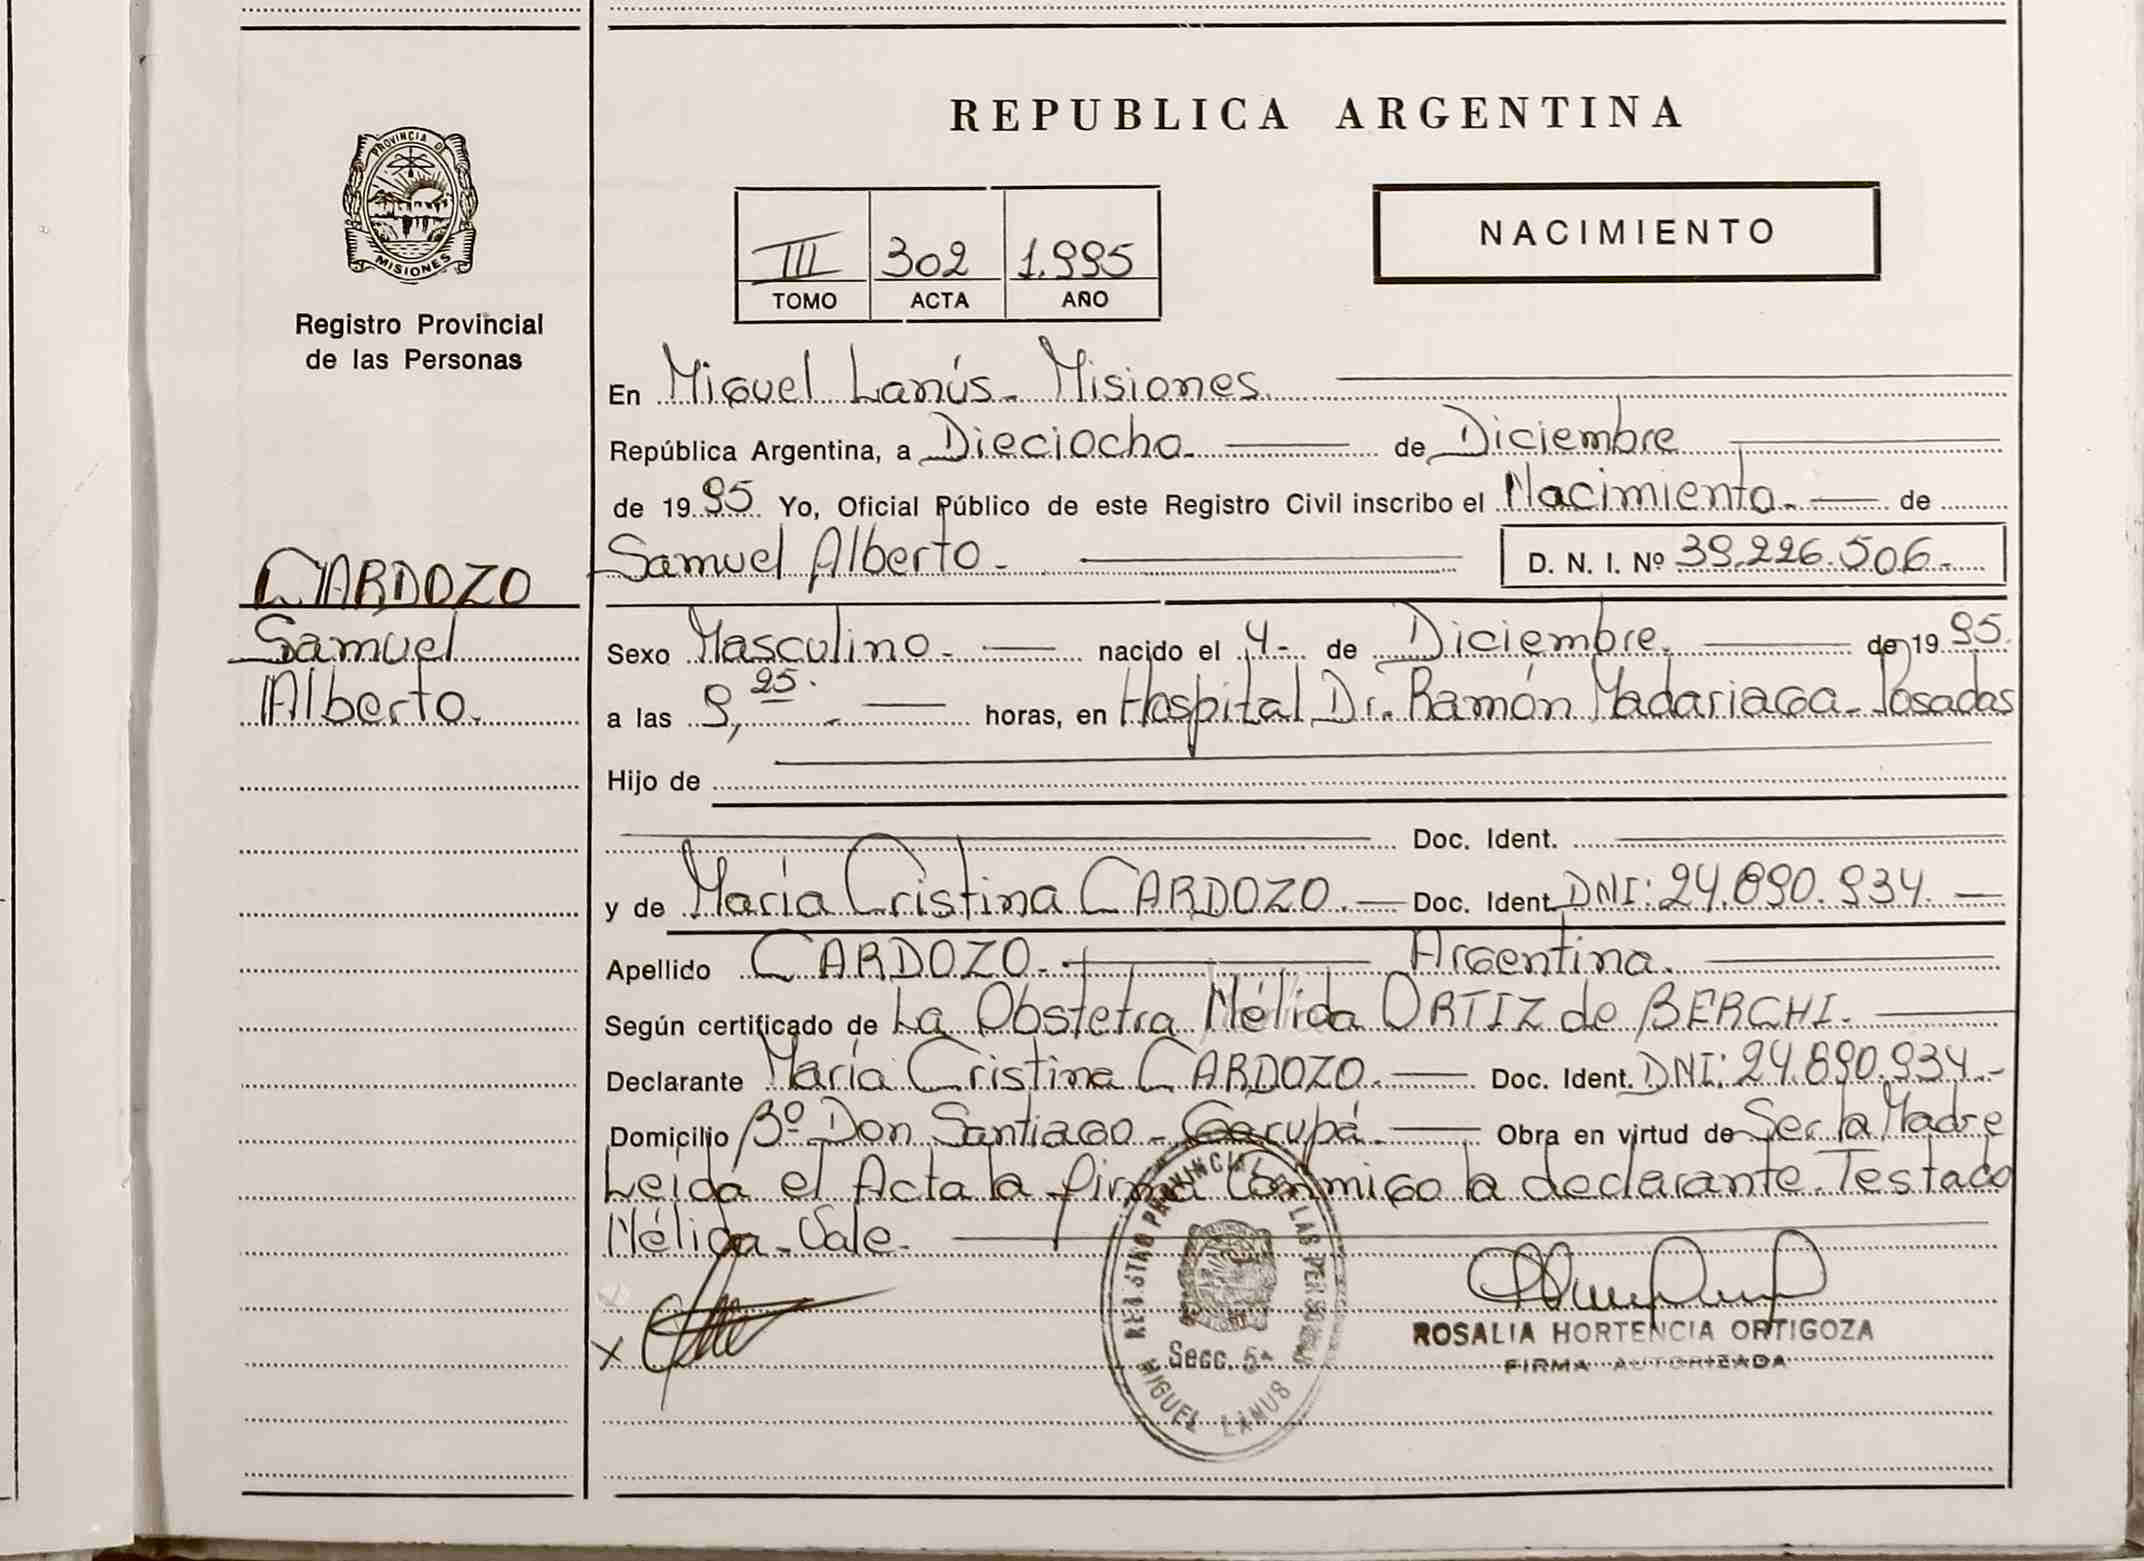 REPUBLICA ARGENTINA
PROVINCIA DE
MISIONES
Registro Provincial
de las Personas
III 302 1.995
TOMO ACTA AÑO
NACIMIENTO
En Miguel Lanús - Misiones.
República Argentina, a Dieciocho - de Diciembre
de 1995 Yo, Oficial Público de este Registro Civil inscribo el Nacimiento - de
Samuel Alberto - D. N. I. Nº 39.226.506.-
CARDOZO
Samuel
Alberto.
Sexo Masculino - nacido el 4 - de Diciembre. de 1995.
a las 9,25. - horas, en Hospital Dr. Ramón Madariaga - Posadas
Hijo de
Doc. Ident.
y de María Cristina CARDOZO. - Doc. Ident. DNI: 24.890.934. -
Apellido CARDOZO. - Argentina.
Según certificado de La Obstetra Nélida ORTIZ de BERCHI. -
Declarante María Cristina CARDOZO. - Doc. Ident. DNI: 24.890.934 -
Domicilio Bº Don Santiago - Garupá. - Obra en virtud de Ser la Madre
Leida el Acta la firma Conmigo la declarante. Testado
Nélida - Vale.
REGISTRO PROVINCIAL DE LAS PERSONAS
Secc. 5ª
MIGUEL LANUS
X
ROSALIA HORTENCIA ORTIGOZA
FIRMA AUTORIZADA